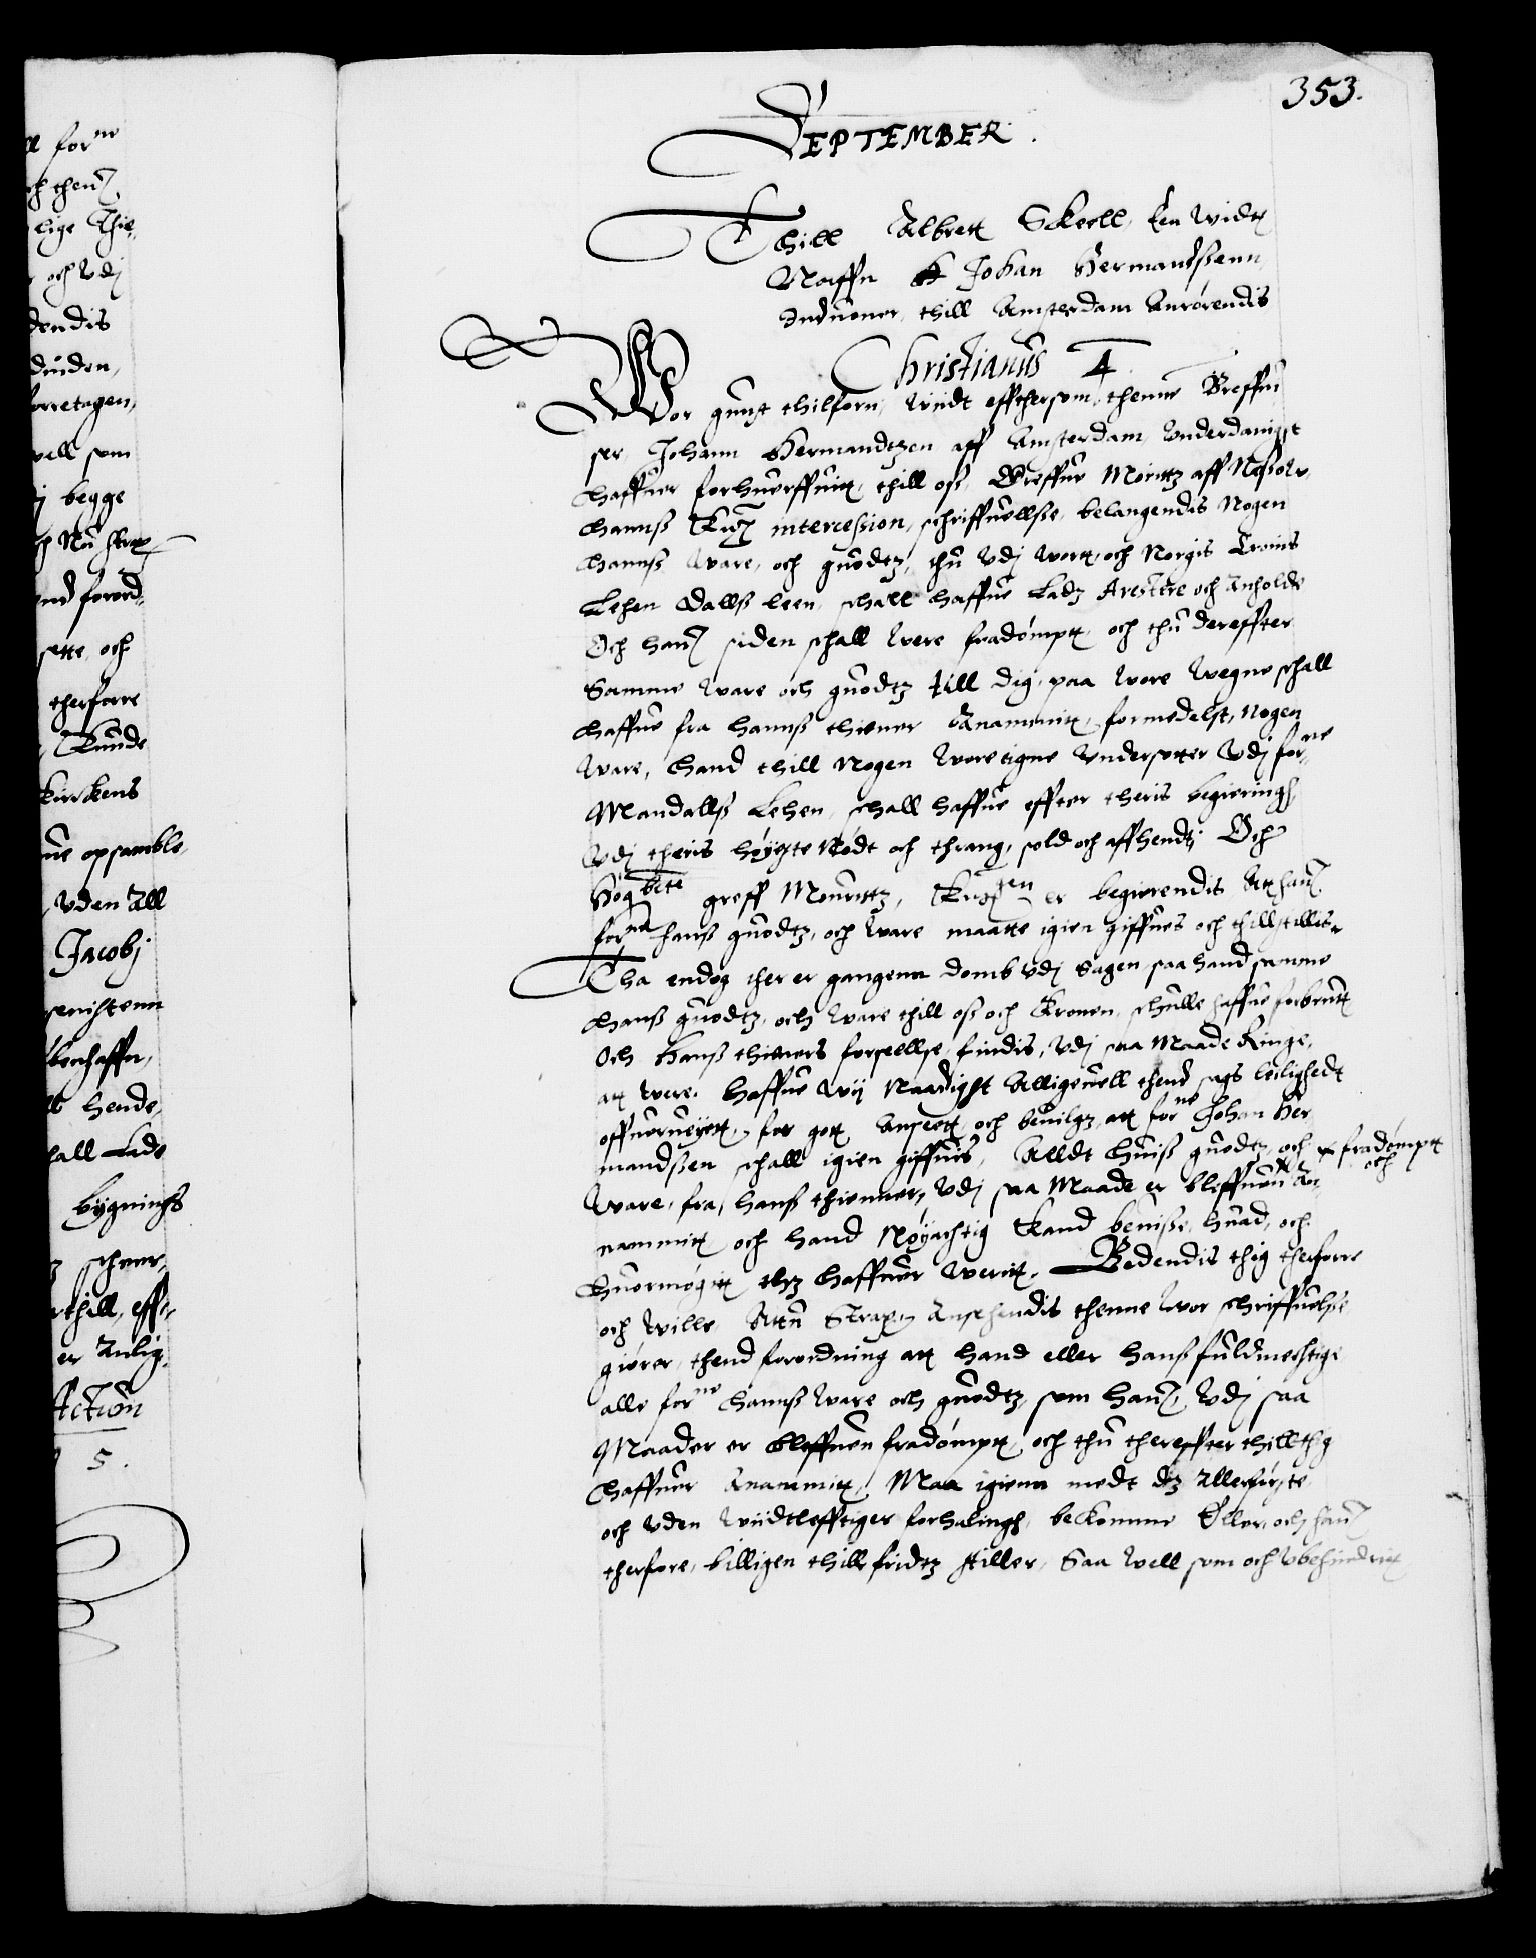 353.
SEPTEMBER.
Thill Albrett Skeell, En widtt
Naffn Johan Hermandßenn
Induoner, thill Amsterdam Anrörendis
Christianus 4
Wor gunst thilforn, Viidt effthersom thenne Breffui
ser Johann Hermandtzen aff Amsterdam, Underdanigst
haffuer forhuerffuitt, thill oß, Greffue Möritz aff Naßow,
hanß intercession, schriffuellße, belangendis Nogen
hanß Ware, och guodtz, thu Udj Wortt och Norgis Croms
Lehen Dallß leen, schall haffue Ladz Arestere och Anholde
Och hanß siden schall Were fradömptt, och thu dereffter
Samme Ware och guodtz till dig, paa Wore Wegne schall
haffue fra hannß thiener Anammitt, formedelst, Nogen
Ware, hand thill Nogen Wore eigne Undersotter Udj forne
Mandallß Lehen, schall haffue effter theris begieringh
Udj theris höyste Nodt och thrang, sold och affhendt; Och
Hög bete greff Mouritz, er begierendis Att hanß
forne hanß guodtz, och Ware maatte igien giffues och thillstillis.
Tha endog ther er gangenn domb Udj Sagen, saa hand samme
hanß guodtz, och Ware thill oß och Kronen, schulle haffue forbrutt
Och Hanß thieners forseellse, findis, Udj saa Maade Ringe,
att Were. Haffue Wij Naadigst Alligeuell thend sags leilighedt
offuerueiett, for gott Anseett, och beuilget, att forne Johan Her
mandßen schall igien giffuis, Alldt huiß guodtz, och × fradömptt
och
Ware, fra, hanß thienner, Udj saa Maade er bleffuen × An
nammitt och hand Nøyachtig Kand beuisse, huad, och
huormögitt thz haffuer Veritt. Bedendis thig therforre
och Wille, Attu Strax, Ansehendis thenne Wor schriffuelse
giörer, thend forordning att hand eller hanß fuldmechtige
alle forne hannß Ware och guodtz som hanß, Udj saa
Maader er bleffuen fradömptt, och thu thereffter thill thig
haffuer Anammitt, Maa igienn medt dz allerförste
och Uden Wiidtlefftiger forhalingh, bekomme Eller, och hanß
therfore, billigen thillfridtz stiller, Saa Well som och Ubehindritt
ll forne
och thenß
lige Thie
och Udj
dendis
duiden,
forretagen,
vell som
j begge
Nu strax
end forord
sette, och
therforre
Kunde
kirckens
ue opsamble,
Uden All
Jacobj
perichtenn
benhaffn,
hende,
hall Lade
bygninghs
scheer,
thill, eff
er Anlig
Action
5.